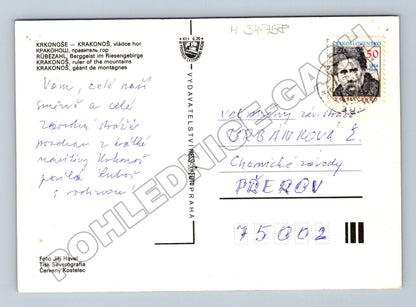 KRKONOŠE — KRAKONOŠ, vládce hor
КРАКОНОШ, правитель гор
RÜBEZAHL, Berggeist im Riesengebirge
KRAKONOŠ, ruler of the mountains
KRAKONOŠ, géant de montagnes
Vám, celé naší
směně a celé
závodní stráži
pozdrav z krátké
návštěvy Krkonoš
posílá Luboš
s rodinou
Foto Jiří Havel
Tisk Severografia
Červený Kostelec
Kčs 0,30
VYDAVATELSTVÍ PRAHA
M 34-758
ČESKOSLOVENSKO
50
stráže
URBÁNKOVÁ Z.
Chemické závody
PŘEROV
75002
POHLEDNICE-GASH